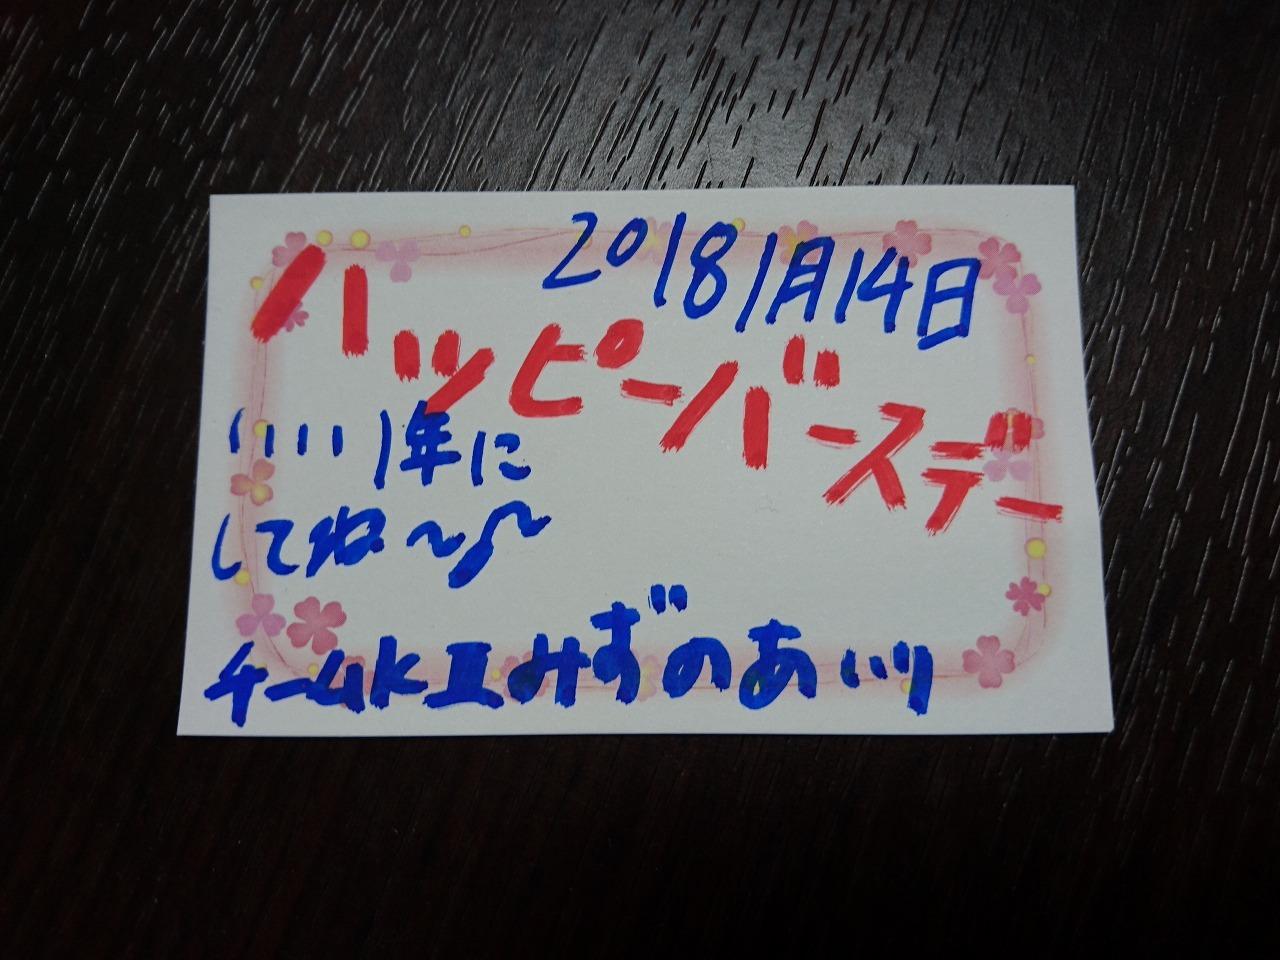 2018 1月14日
ハッピーバースデー
いい1年に
してね〜♪
チームKⅡみずのあいり